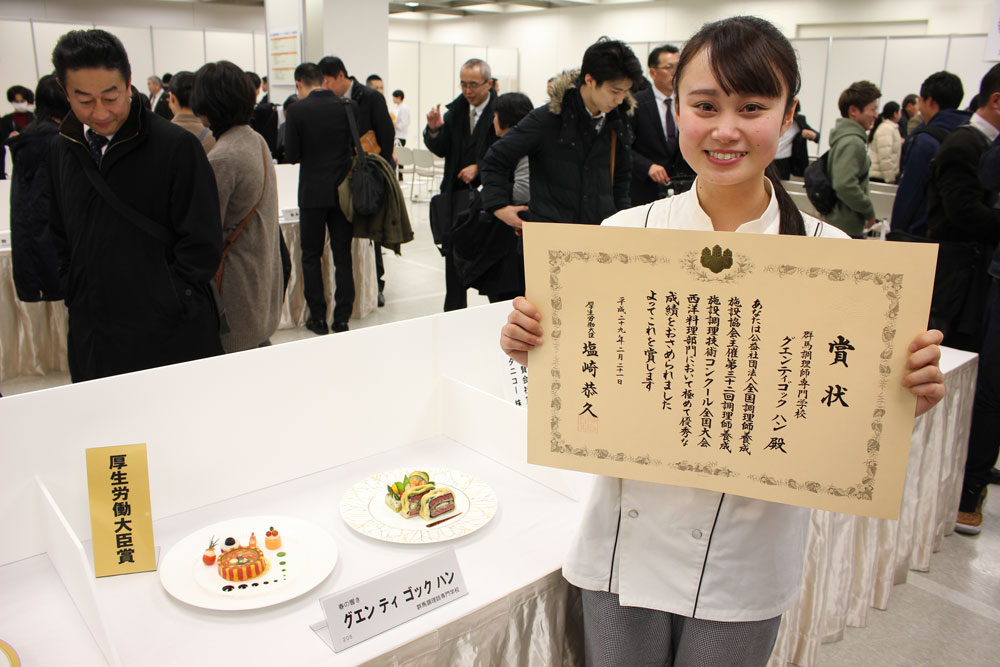 賞状
群馬調理師専門学校
グエンティゴック ハン 殿
あなたは公益社団法人全国調理師養成
施設協会主催第三十二回調理師養成
施設調理技術コンクール全国大会
西洋料理部門において極めて優秀な
成績をおさめられました
よってこれを賞します
平成二十九年二月二十一日
厚生労働大臣 塩崎恭久
厚生労働大臣賞
春の響き
グエン ティ ゴック ハン
群馬調理師専門学校
205